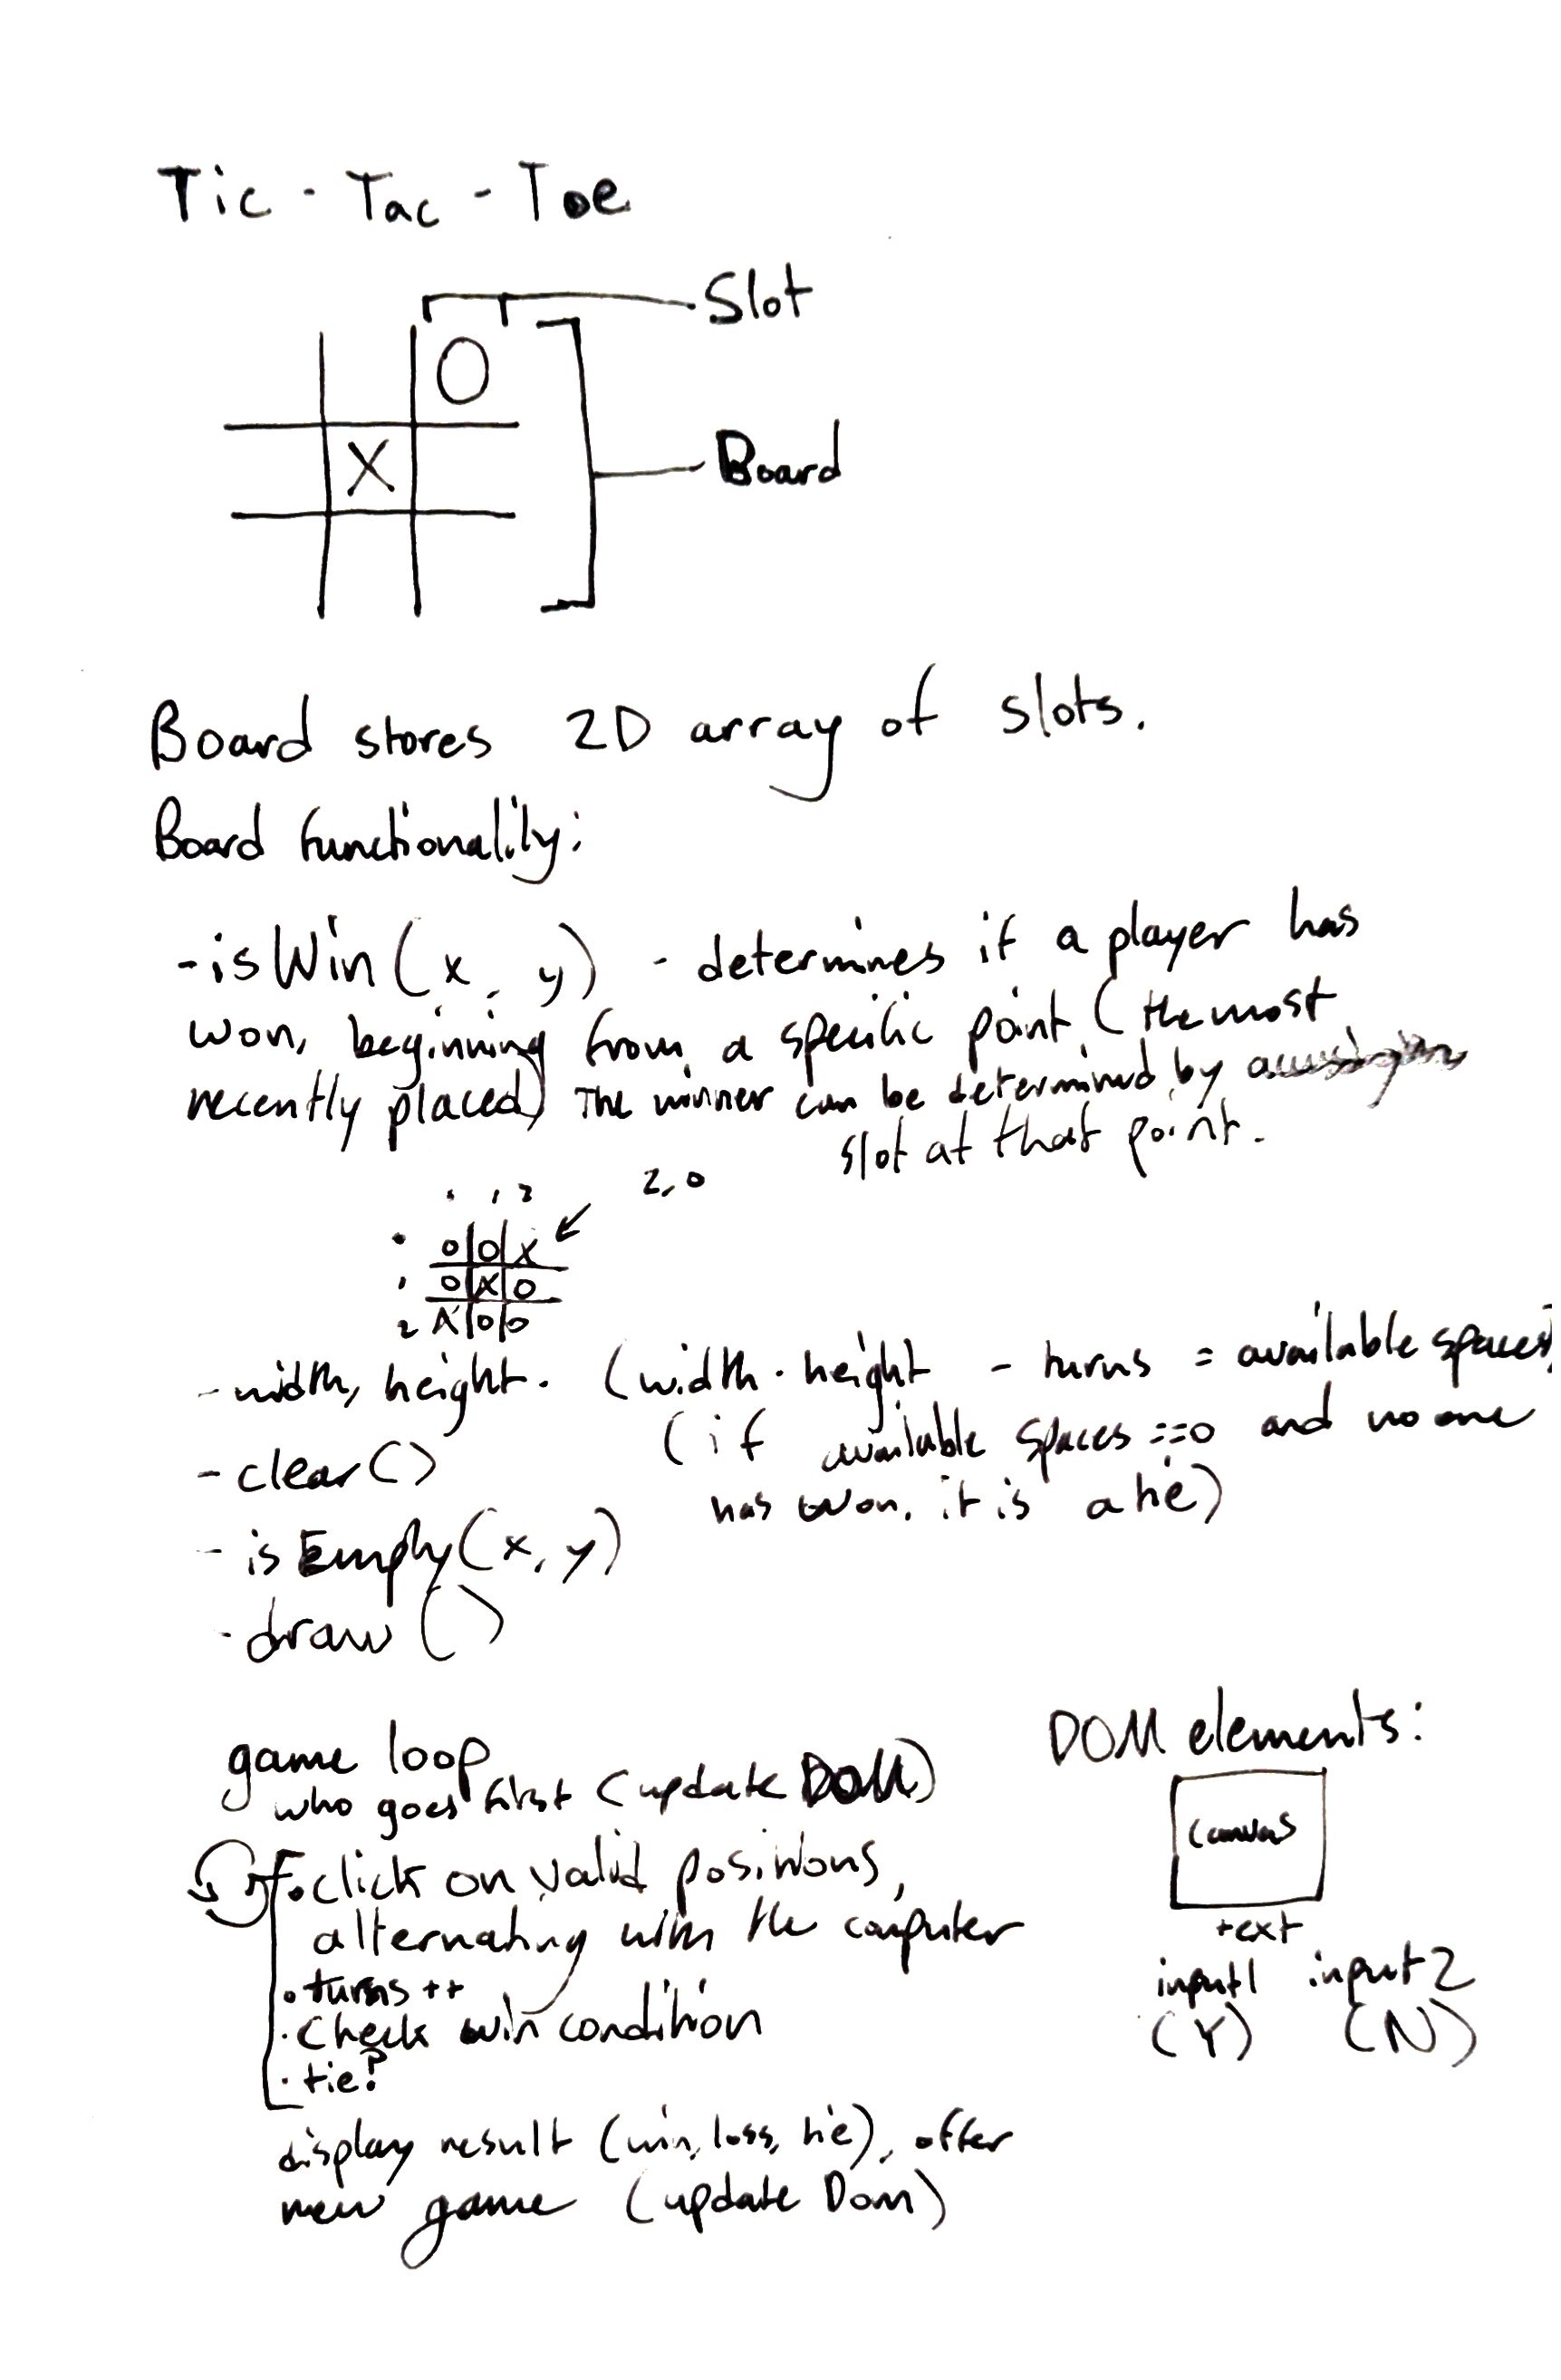 Tic - Tac - Toe
Slot
O
X
Board
Board stores 2D array of slots.
Board functionality:
- isWin(x, y) - determines if a player has
won, beginning from a specific point (the most
recently placed) The winner can be determined by
slot at that point.
2,0
0 1 2
0 O O X
1 O X O
2 X O O
- width, height. (width · height - turns = available spaces)
(if available spaces ==0 and no one
has won, it is a tie)
- clear()
- isEmpty(x, y)
- draw()
game loop
who goes first (update DOM)
· click on valid positions,
alternating with the computer
· turns ++
· Check win condition
· tie?
display result (win, loss, tie), offer
new game (update Dom)
DOM elements:
Canvas
text
input1 input2
(Y) (N)